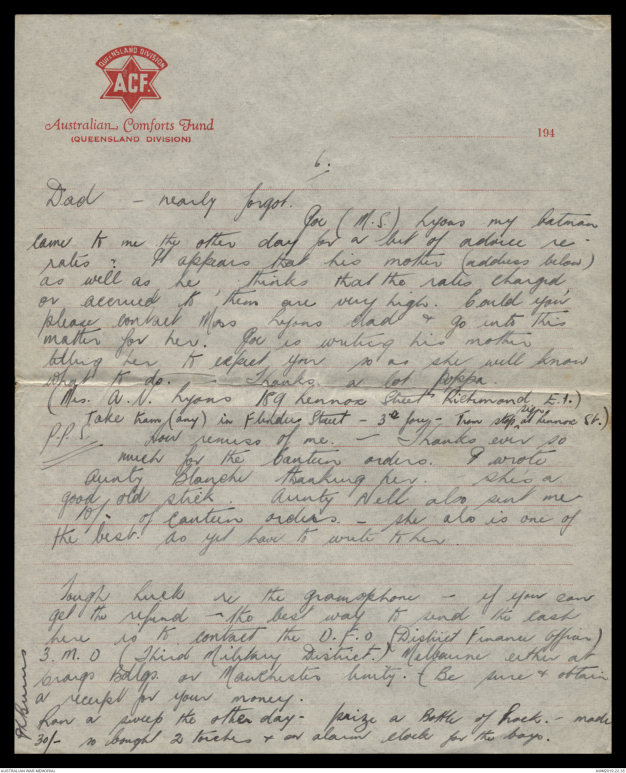 QUEENSLAND DIVISION
ACF.
Australian Comforts Fund
(QUEENSLAND DIVISION)
194
6.
Dad - nearly forgot.
Joe (M.S.) Lyons my batman
came to me the other day for a bit of advice re -
rates. It appears that his mother (address below)
as well as he, thinks that the rates charged
or accrued to them are very high. Could you
please contact Mrs Lyons Dad & go into this
matter for her. Joe is writing his mother
telling her to expect you so as she will know
what to do. - Thanks a lot Poppa.
(Mrs. A. V. Lyons 189 Lennox Street Richmond, E.1.)
Take tram (any) in Flinders Street - 3d fare - Tram stop sign at Lennox St.)
P.P.S. How remiss of me. - Thanks ever so
much for the Canteen orders. I wrote
Aunty Blanche thanking her. She's a
good old stick. Aunty Nell also sent me
10/- of canteen orders. - she also is one of
the best. As yet have to write to her.
Tough luck re the gramophone - if you can
get the refund - the best way to send the cash
here is to contact the D.F.O (District Finance Officer)
3. M. D (Third Military District.) Melbourne either at
Craigs Bldgs. or Manchester Unity. (Be sure & obtain
a receipt for your money.
Ran a sweep the other day - prize a Bottle of hock. - made
30/- so bought 2 torches & an alarm clock for the boys.
AUSTRALIAN WAR MEMORIAL